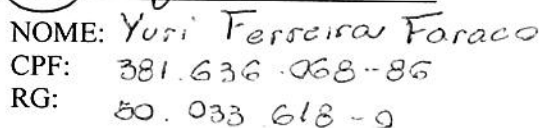 NOME: Yuri Ferreira Faraco
CPF: 381.636.068-86
RG: 50.033.618-9